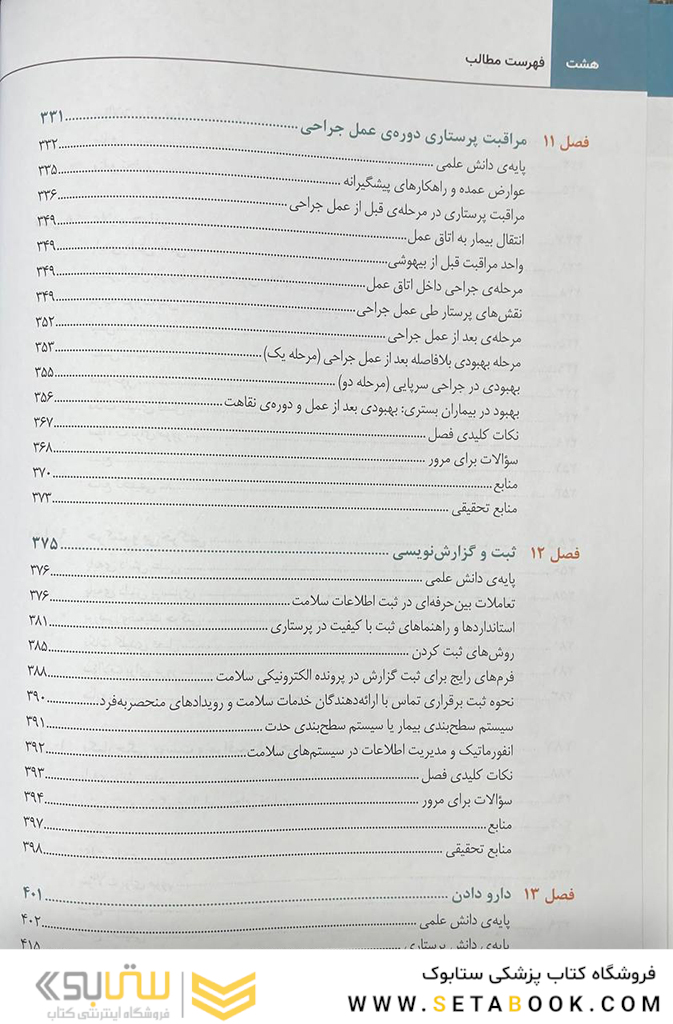 هشت فهرست مطالب
فصل ۱۱ مراقبت پرستاری دوره‌ی عمل جراحی ۳۳۱
پایه‌ی دانش علمی ۳۳۲
عوارض عمده و راهکارهای پیشگیرانه ۳۳۵
مراقبت پرستاری در مرحله‌ی قبل از عمل جراحی ۳۳۶
انتقال بیمار به اتاق عمل ۳۴۹
واحد مراقبت قبل از بیهوشی ۳۴۹
مرحله‌ی جراحی داخل اتاق عمل ۳۴۹
نقش‌های پرستار طی عمل جراحی ۳۴۹
مرحله‌ی بعد از عمل جراحی ۳۵۲
مرحله بهبودی بلافاصله بعد از عمل جراحی (مرحله یک) ۳۵۳
بهبودی در جراحی سرپایی (مرحله دو) ۳۵۵
بهبود در بیماران بستری: بهبودی بعد از عمل و دوره‌ی نقاهت ۳۵۶
نکات کلیدی فصل ۳۶۷
سؤالات برای مرور ۳۶۸
منابع ۳۷۰
منابع تحقیقی ۳۷۳
فصل ۱۲ ثبت و گزارش‌نویسی ۳۷۵
پایه‌ی دانش علمی ۳۷۶
تعاملات بین‌حرفه‌ای در ثبت اطلاعات سلامت ۳۷۶
استانداردها و راهنماهای ثبت با کیفیت در پرستاری ۳۸۱
روش‌های ثبت کردن ۳۸۵
فرم‌های رایج برای ثبت گزارش در پرونده الکترونیکی سلامت ۳۸۸
نحوه ثبت برقراری تماس با ارائه‌دهندگان خدمات سلامت و رویدادهای منحصربه‌فرد ۳۹۰
سیستم سطح‌بندی بیمار یا سیستم سطح‌بندی حدت ۳۹۱
انفورماتیک و مدیریت اطلاعات در سیستم‌های سلامت ۳۹۲
نکات کلیدی فصل ۳۹۳
سؤالات برای مرور ۳۹۴
منابع ۳۹۷
منابع تحقیقی ۳۹۸
فصل ۱۳ دارو دادن ۴۰۱
پایه‌ی دانش علمی ۴۰۲
پایه‌ی دانش پرستاری ۴۱۵
فروشگاه کتاب پزشکی ستابوک
WWW.SETABOOK.COM
ستابوک
فروشگاه اینترنتی کتاب